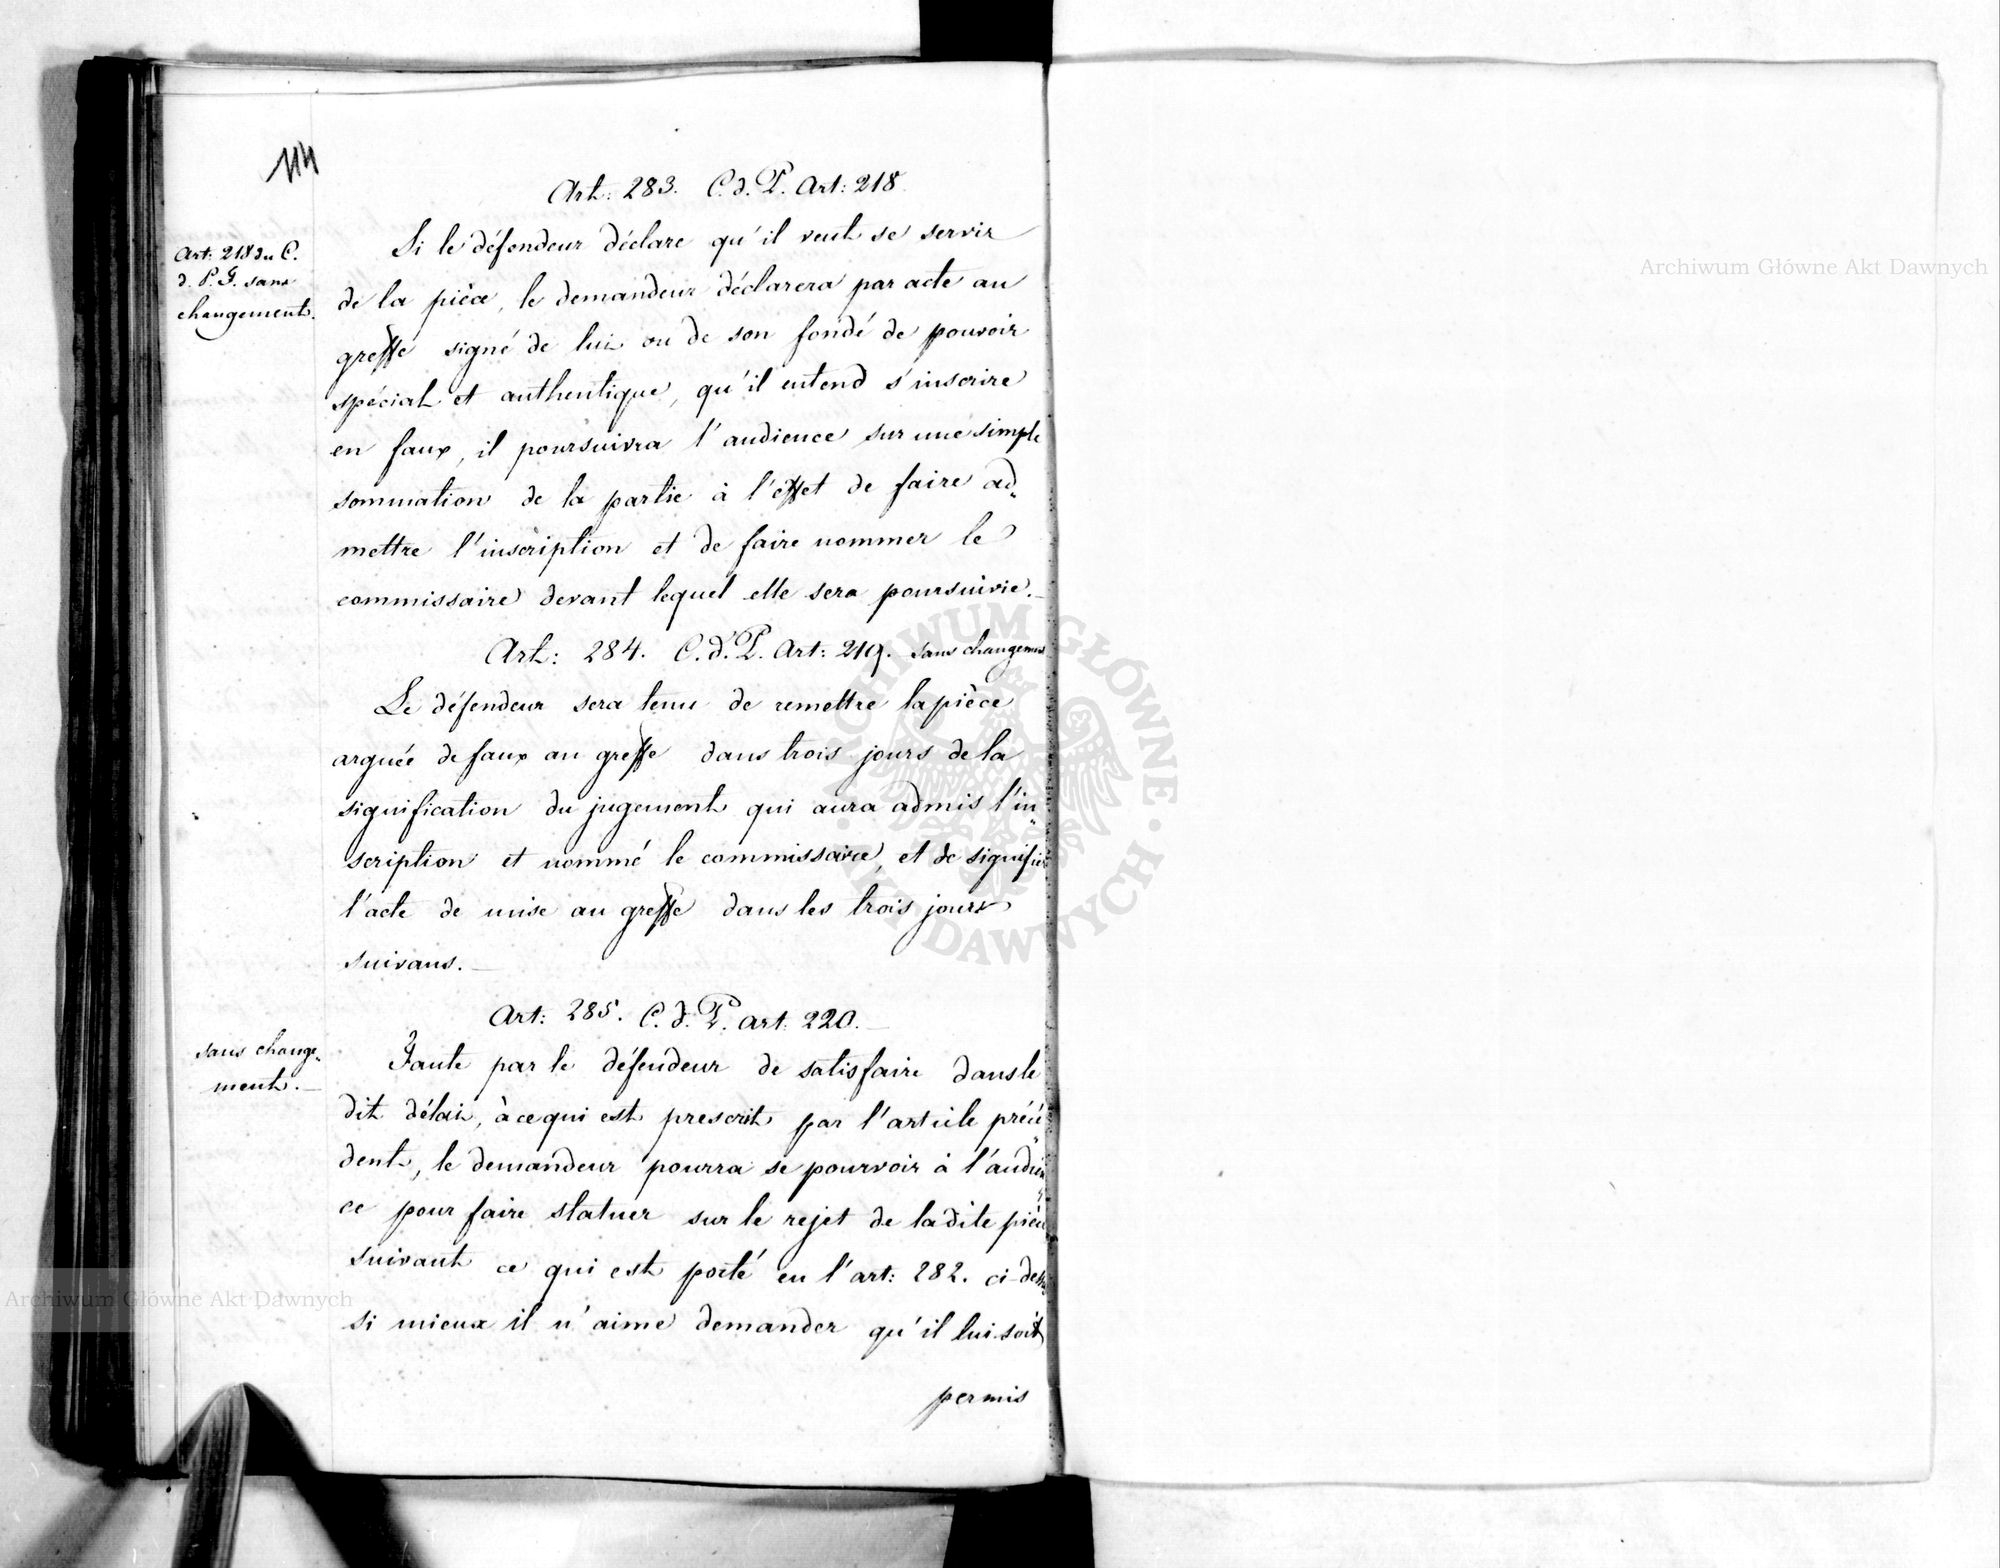 114
Art: 283. C. d. P. Art: 218.
Art: 218 du C.
d. P. F. sans
changement.
Si le défendeur déclare qu'il veut se servir
de la pièce, le demandeur déclarera par acte au
greffe signé de lui ou de son fondé de pouvoir
spécial et authentique, qu'il entend s'inscrire
en faux, il poursuivra l'audience sur une simple
sommation de la partie à l'effet de faire ad„
mettre l'inscription et de faire nommer le
commissaire devant lequel elle sera poursuivie.
Art: 284. C. d. P. Art: 219. sans changement
Le défendeur sera tenu de remettre la pièce
arguée de faux au greffe dans trois jours de la
signification du jugement qui aura admis l'in„
scription et nommé le commissaire, et de signifier
l'acte de mise au greffe dans les trois jours
suivans.
Art: 285. C. d. P. art: 220.
sans change„
ment.
Faute par le défendeur de satisfaire dans le
dit délai, à ce qui est prescrit par l'article précé„
dent, le demandeur pourra se pourvoir à l'audien„
ce pour faire statuer sur le rejet de la dite pièce
suivant ce qui est porté en l'art: 282. ci-dessus
si mieux il n'aime demander qu'il lui soit
permis
Archiwum Główne Akt Dawnych
Archiwum Główne Akt Dawnych
ARCHIWUM GŁÓWNE · AKT DAWNYCH ·